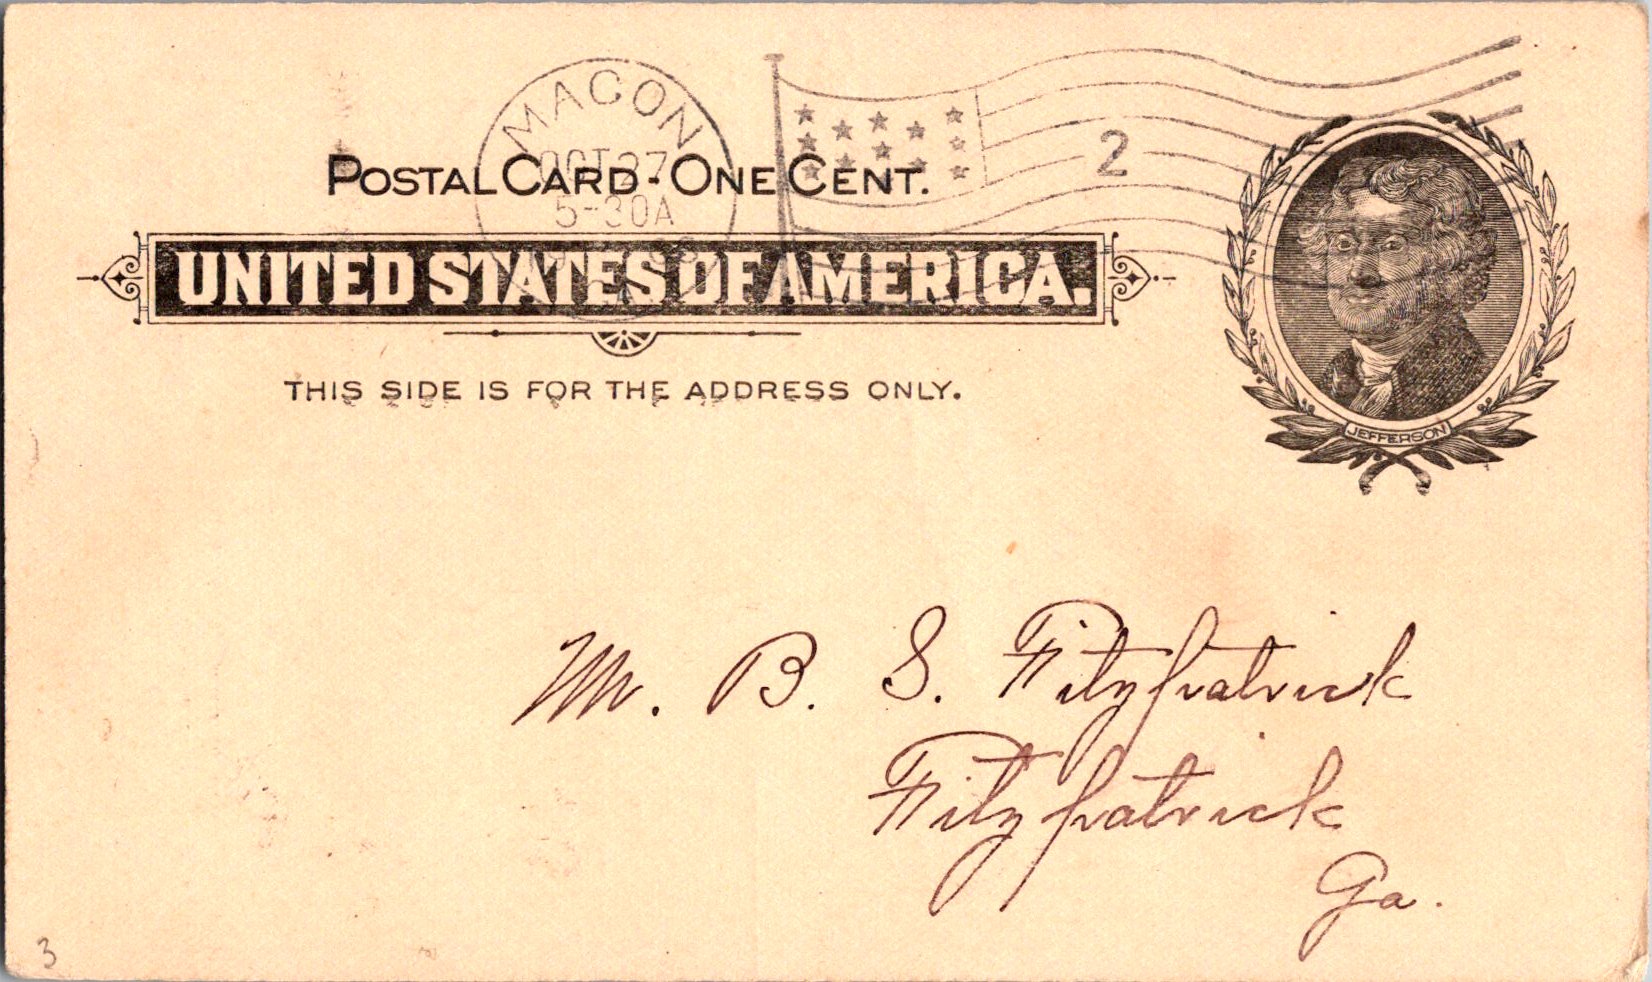 MACON
OCT 27
5-30A
2
POSTAL CARD - ONE CENT.
UNITED STATES OF AMERICA.
THIS SIDE IS FOR THE ADDRESS ONLY.
JEFFERSON
Mr. B. S. Fitzpatrick
Fitzpatrick
Ga.
3